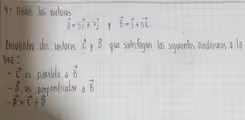 4- Dados los vectores
a⃗ = 5i⃗ + 7j⃗ y b⃗ = i⃗ + 5k⃗
Encuentra dos vectores c⃗ y d⃗ que satisfagan las siguientes condiciones a la
vez:
- c⃗ es paralelo a b⃗
- d⃗ es perpendicular a b⃗
- a⃗ = c⃗ + d⃗